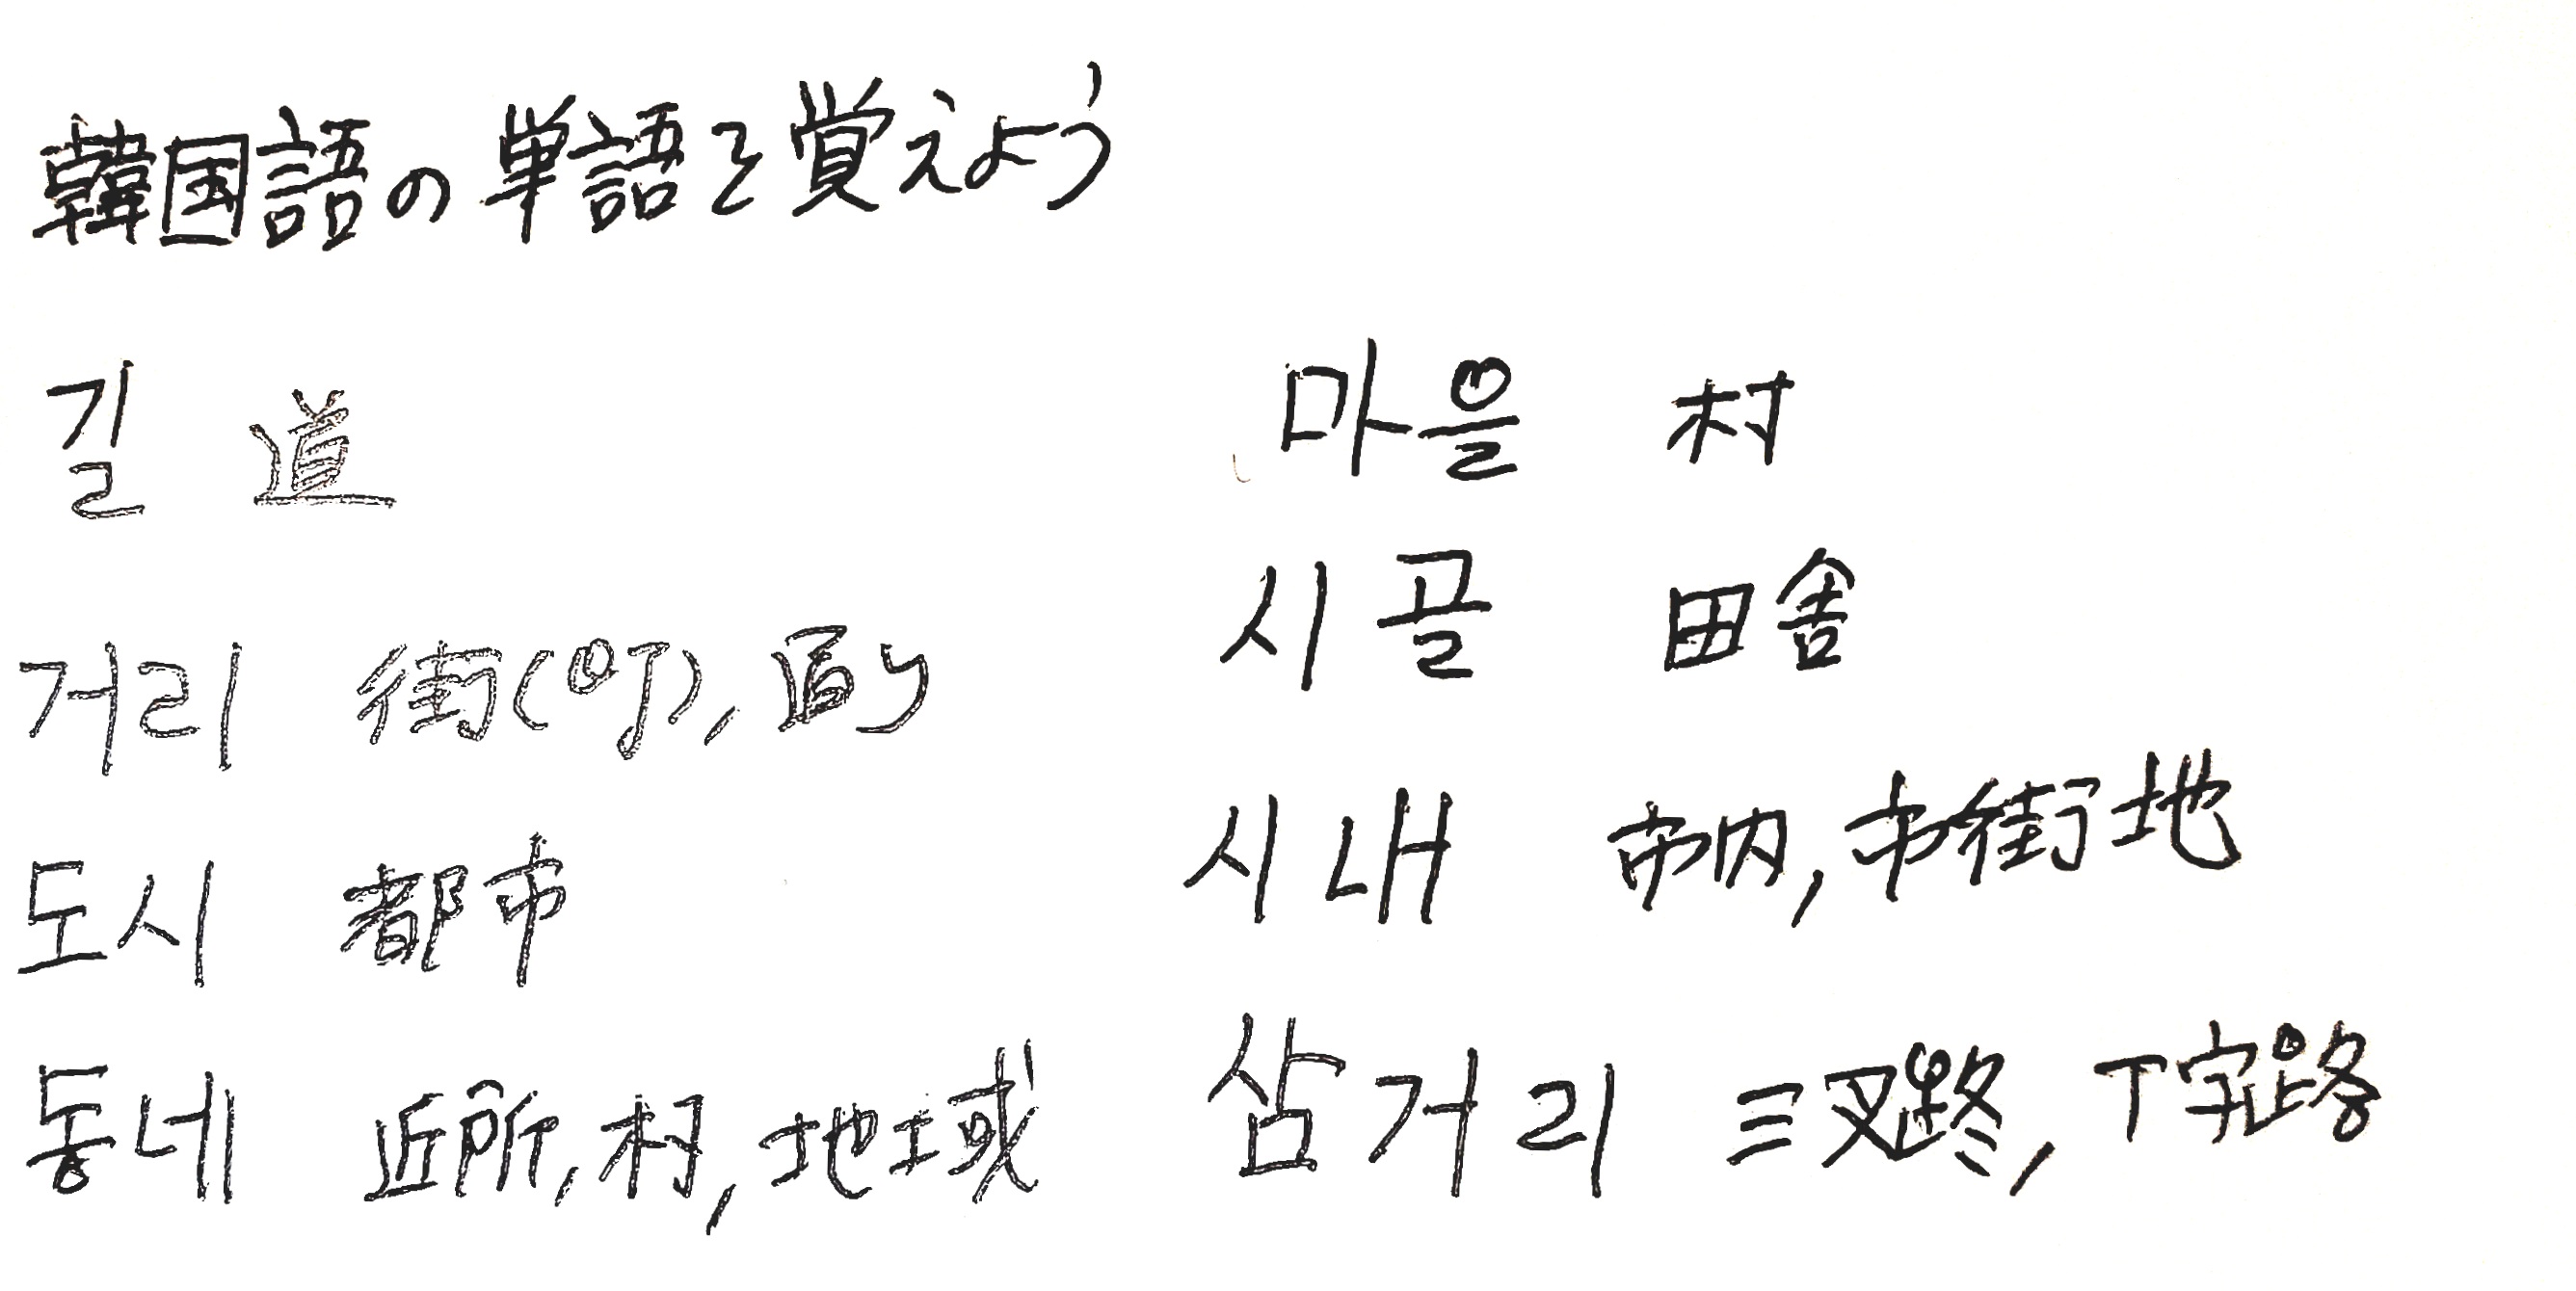 韓国語の単語を覚えよう
길 道
거리 街(町),通り
도시 都市
동네 近所,村,地域
마을 村
시골 田舎
시내 市内,市街地
삼거리 三叉路,T字路